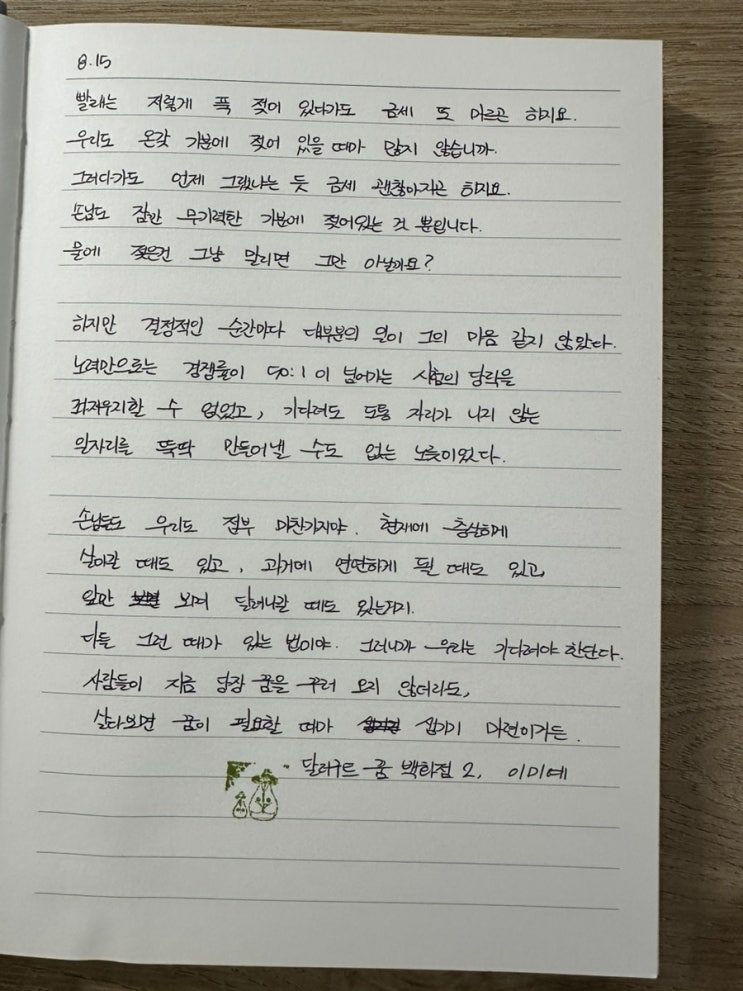 8.15
빨래는 저렇게 푹 젖어 있다가도 금세 또 마르곤 하지요.
우리도 온갖 기분에 젖어 있을 때가 많지 않습니까.
그러다가도 언제 그랬냐는 듯 금세 괜찮아지곤 하지요.
손님도 잠깐 무기력한 기분에 젖어있는 것 뿐입니다.
물에 젖은건 그냥 말리면 그만 아닐까요?
하지만 결정적인 순간마다 대부분의 일이 그의 마음 같지 않았다.
노력만으로는 경쟁률이 50:1이 넘어가는 시험의 당락을
좌지우지할 수 없었고, 기다려도 도통 자리가 나지 않는
일자리를 뚝딱 만들어낼 수도 없는 노릇이었다.
손님들도 우리도 전부 마찬가지야. 현재에 충실하게
살아갈 때도 있고, 과거에 연연하게 될 때도 있고,
앞만 보며 달려나갈 때도 있는거지.
다들 그런 때가 있는 법이야. 그러니까 우리는 기다려야 한단다.
사람들이 지금 당장 꿈을 꾸러 오지 않더라도,
살다보면 꿈이 필요할 때가 생기기 마련이거든.
" 달러구트 꿈 백화점 2, 이미예